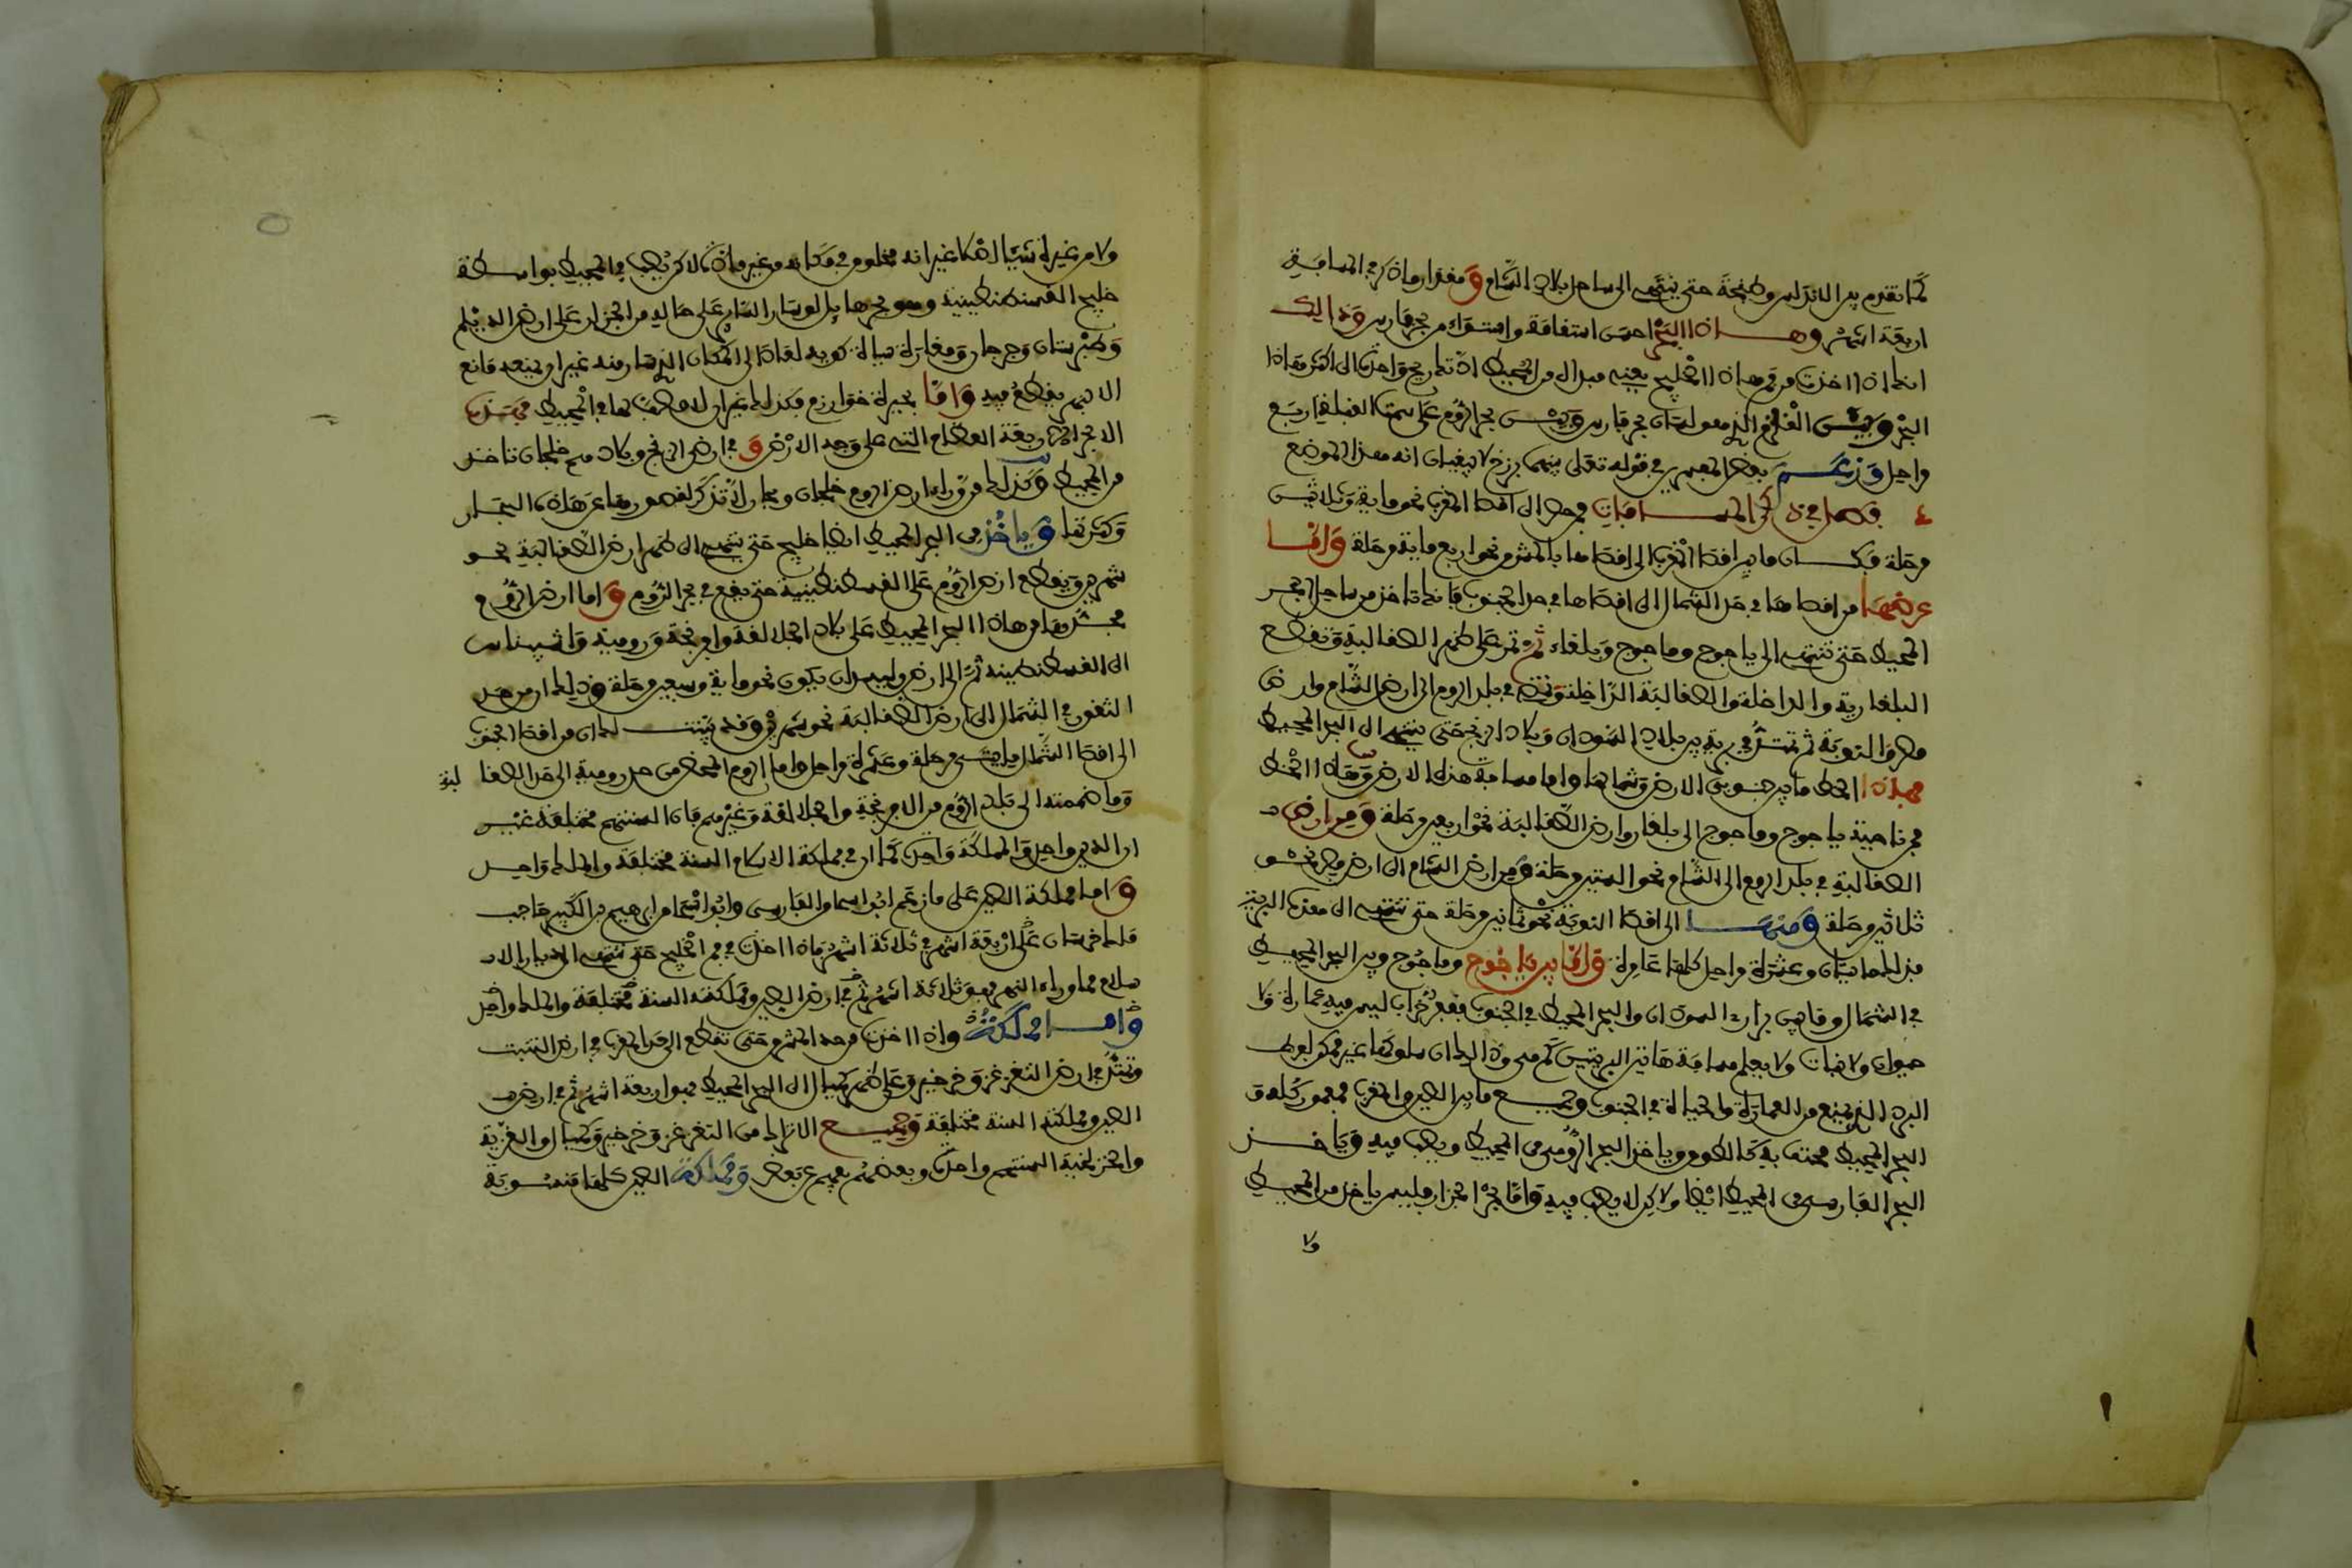 كما تقدم بين الاندلس وطنجة حتى ينتهي الى ساحل بلاد الشام ومقدار ماذكر في المسافة
اربعة اشهر وهذا البحر احسن استقامة واستواء من بحر فارس وذالك
انك اذا اخذت من فم هاذا الخليج يعني مبداه من المحيط اذتك ريح واحدة الى اكثر هاذا
البحر وبين القلزم الذي هو لسان بحر فارس وبين بحر الروم على سمت القبلة اربع
مراحل وزعم بعض المفسرين في قوله تعلى بينهما برزخ لا يبغيان انه هذا الموضع
فصل في ذكر المسافات فمن مصر الى اقصا المغرب نحو ماية وثلاثين
مرحلة فكان ما بين اقصا المغرب الى اقصاها بالمشرق نحو اربع ماية مرحلة واما
عرضها من اقصاها في حد الشمال الى اقصاها في حد الجنوب فانك تاخذ من ساحل البحر
المحيط حتى تنتهي الى ياجوج وماجوج وبلغاء ثم تمر على ظهر الصقالبة وتقطع
البلغارية والداخلة والصقالبة الداخلة وتمضي في بلد الروم الى ارض الشام وارض
مصر والنوبة ثم تمتد في برية بين بلاد السودان وبلاد الزنج حتى ينتهي الى البحر المحيط
فهاذا الخط ما بين جنوبي الارض وشمالها واما مسافة هذه الارض وهاذا الخط
فمن ناحية ياجوج وماجوج الى بلغار وارض الصقالبة نحو اربعين مرحلة ومن ارض
الصقالبة في بلد الروم الى الشام نحو الستين مرحلة ومن ارض الشام الى ارض مصر نحو
ثلاثين مرحلة ومنها الى اقصا النوبة نحو ثمانين مرحلة حتى تنتهي الى هذه البرية
فذلك ماىتان وعشرة مراحل كلها عامرة واما بين ياجوج وماجوج وبين البحر المحيط
في الشمال وما بين براري السودان والبحر المحيط في الجنوب فقفر خراب ليس فيه عمارة ولا
حيوان ولا نبات ولا يعلم مسافة هاتين البريتين كم هي وذالك ان سلوكها غير ممكن لفرط
البرد الذي يمنع من العمارة والحياة في الجنوب وجميع ما بين الصين والمغرب فمعمور كله و
البحر المحيط محتف به كالطوق وياخذ البحر الرومي من المحيط ويصب فيه وياخذ
البحر الفارسي من المحيط ايضا ولاكن لا يصب فيه واما بحر الخزر فليس ياخذ من المحيط
ولا
ولا من غيره شيئا اصلا غير انه مخلوق في مكانه من غير مادة لاكن يصب في المحيط بواسطة
خليج القسطنطينية وهو بحر لو سار الساير على ساحله من الخزر على ارض الديلم
وطبرستان وجرجان ومفازة سياه كويه لعاد الى المكان الذي سار منه غير ان يمنعه مانع
الا نهر يقطع فيه واما بحيرة خوارزم فكذلك غير ان لا مصب لها في المحيط فهذه
الابحر الاربعة العظام التي على وجه الارض وفي ارض الزنج وبلادهم خلجان تاخذ
من المحيط وكذلك من وراء ارض الروم خلجان وبحار لا تذكر لقصورها عن هذه البحار
وكثرتها وياخذ من البحر المحيط ايضا خليج حتى ينتهي الى ظهر ارض الصقالبة نحو
شهرين ويقطع ارض الروم على القسطنطينية حتى يقع في بحر الروم واما ارض الروم
فحدها من هاذا البحر المحيط على بلاد الجلالقة وافرنجة ورومية واشيناس
الى القسطنطينية ثم الى ارض الصقالبة ان يكون نحو ماية وسبعين مرحلة وذلك ان من حد
الثغور في الشمال الى ارض الصقالبة نحو شهرين وقد بينت لك ان من اقصا الجنوب
الى اقصا الشمال مايتي مرحلة وعشرة مراحل واما الروم المحض من حد رومية الى حد الصقا لبة
وما ضممته الى بلد الروم من الافرنجة والجلالقة وغيرهم فان السنتهم مختلفة غير
ان الدين واحد والمملكة واحدة كما ان في مملكة الاسلام السنة مختلفة والملك واحد
واما مملكة الصين على ما زعم ابو اسحاق الفارسي وابو اسحاق ابرهيم بن البكين حاجب
ملك خرسان على اربعة اشهر في ثلاثة اشهر فاذا اخذت من فم الخليج حتى تنتهي الى ديار الا
سلام مما وراء النهر فهو ثلاثة اشهر ثم في ارض الصين ومملكته السنة مختلفة والملك واحد
واما مملكته واذا اخذت من حد المشرق حتى تقطع الى حد المغرب في ارض التبت
وتمتد في ارض التغزغز وخرخيز وعلى ظهر كيماك الى البحر المحيط فهو اربعة اشهر ثم في ارض
الصين ومملكته السنة مختلفة وجميع الاتراك من التغزغز وخرخيز وكيماك والغزية
والخزلخية السنتهم واحدة وبعضهم يفهم عن بعض ومملكة الصين كلها منسوبة